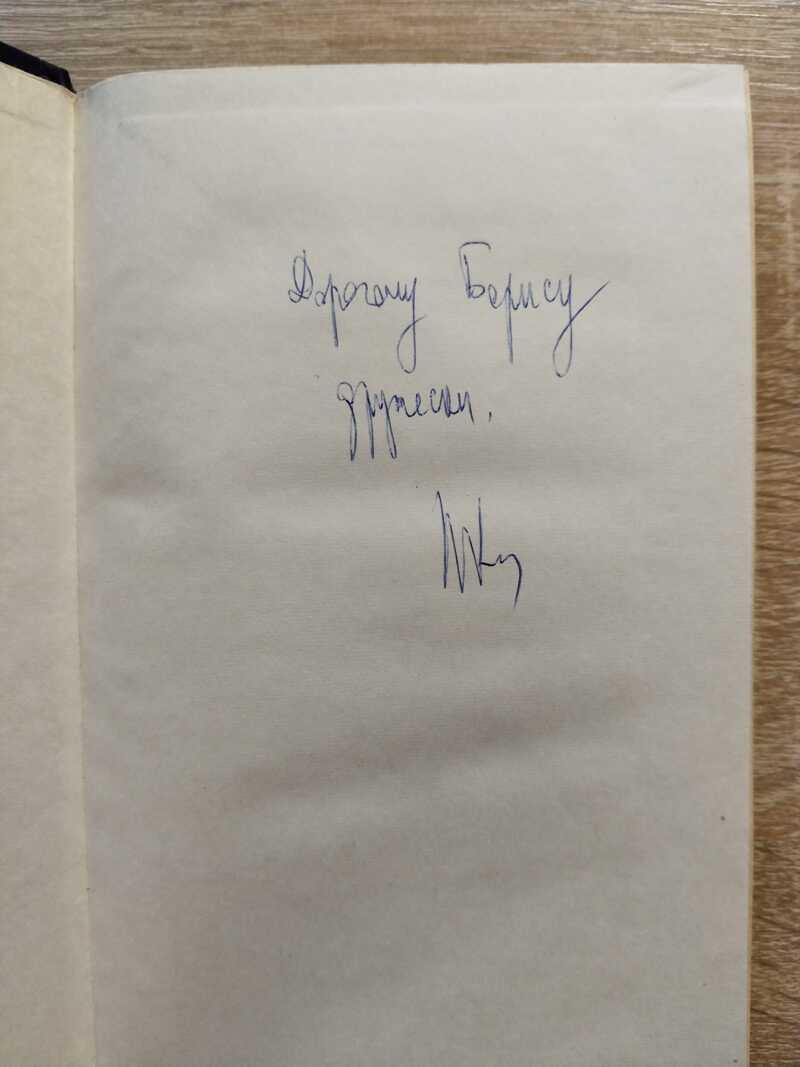 Дорогому Борису
дружески.